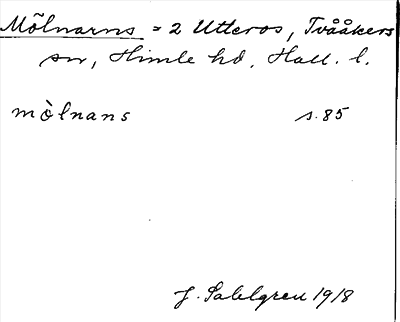 Mõlnarns = 2 Utteros, Tvååkers
sn, Himle hd, Hall. l.
mòlnans s. 85
J. Sahlgren 1918